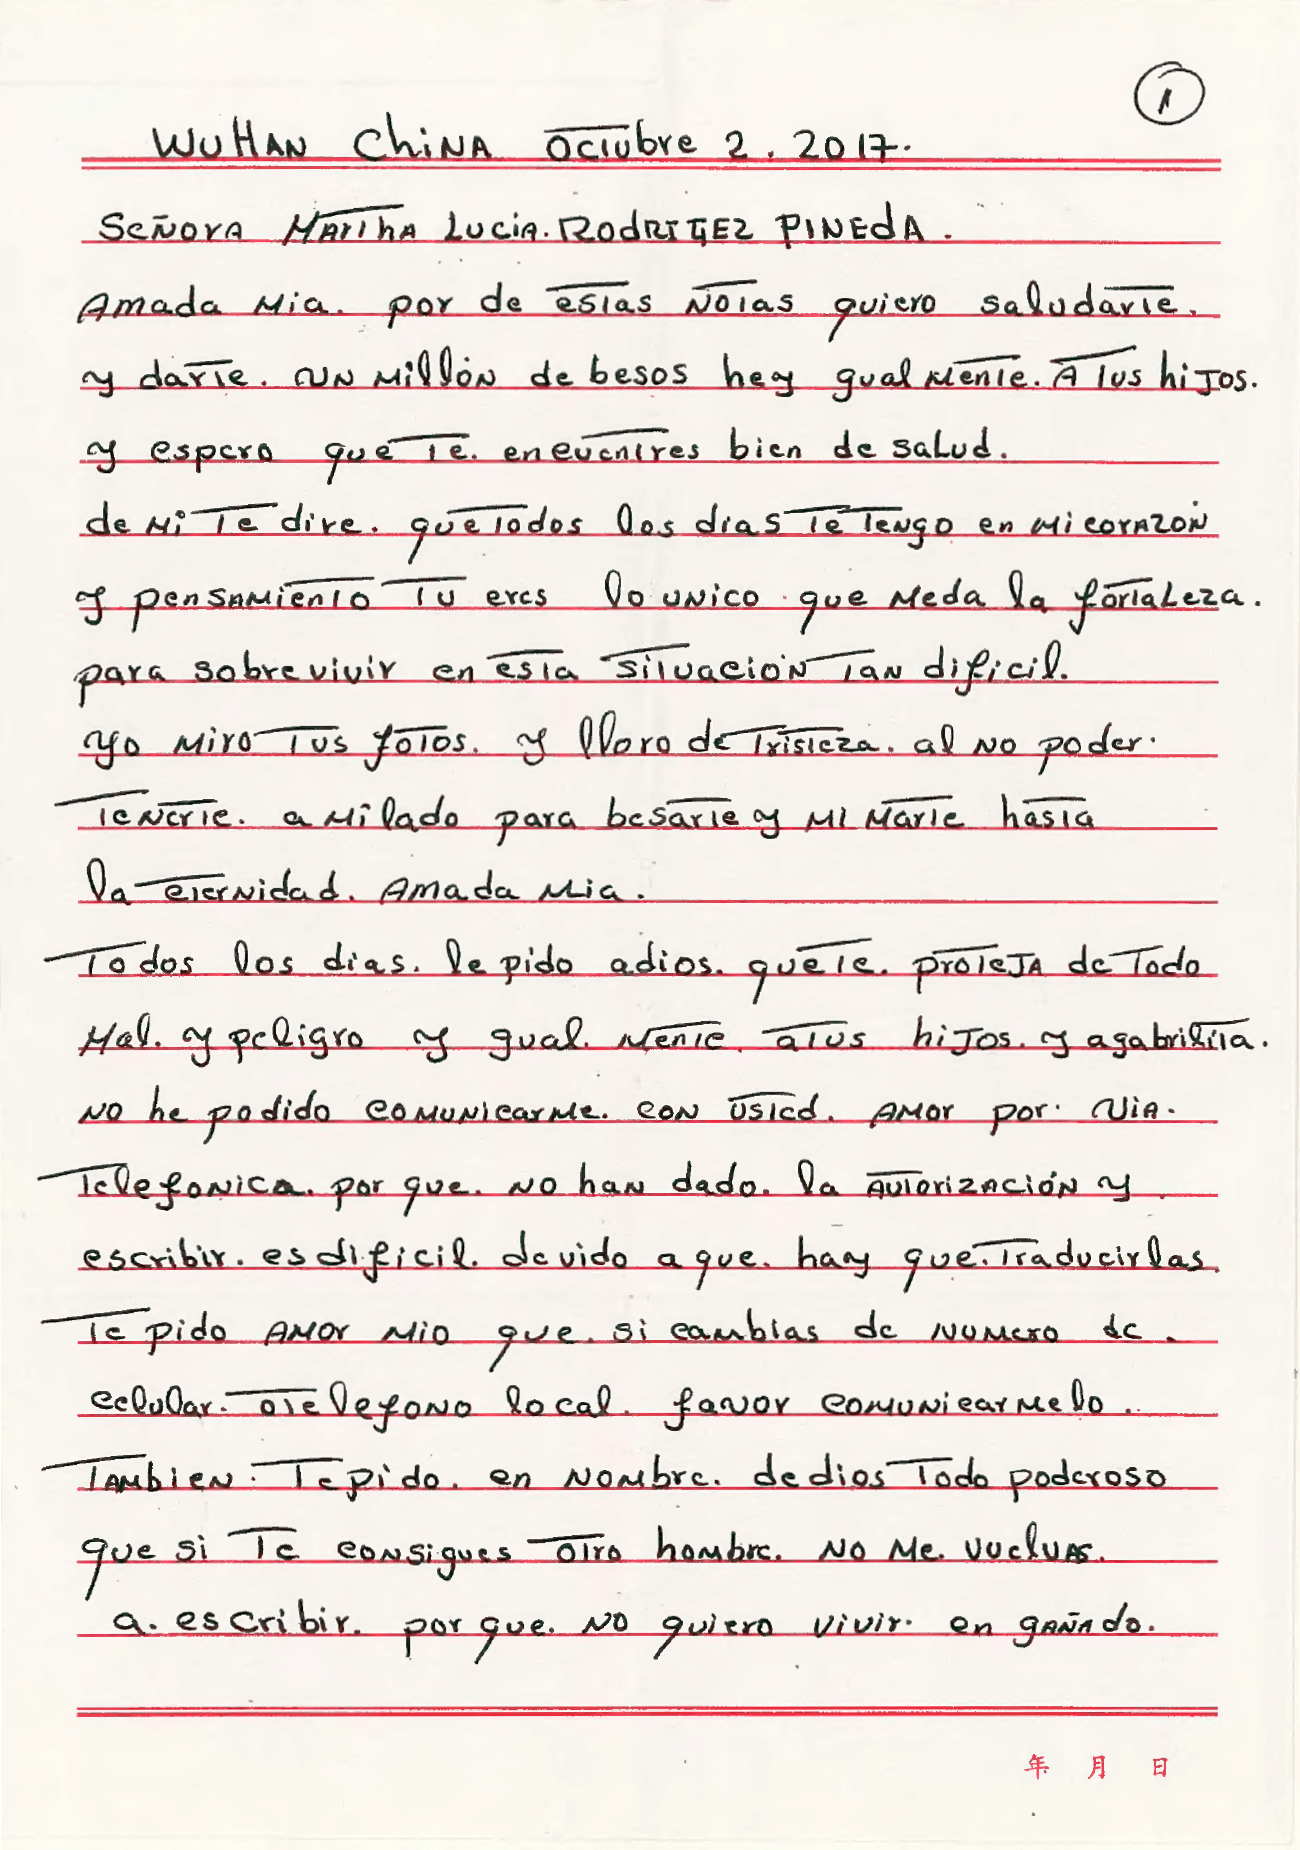 1
WUHAN China Octubre 2. 2017.
Señora Martha Lucia. RODRIGEZ PINEDA.
Amada Mia. por de estas Notas quiero saludarte.
y darte. un Millón de besos hey gual Mente. A tus hiJos.
y espero que te. encuentres bien de salud.
de Mi te dire. que todos los dias te tengo en Mi corazón
y pensamiento tu eres lo unico que Meda la fortaleza.
para sobre vivir en esta situación tan dificil.
yo Miro tus fotos. y lloro de tristeza. al no poder.
tenerte. a Mi lado para besarte y Mi Marte hasta
la eternidad. Amada Mia.
todos los dias. le pido adios. que te. proteJa de todo
Mal. y peligro y gual. Mente. atus hiJos. y agabrilita.
no he podido comunicarme. con usted. Amor por. via.
telefonica. por que. no han dado. la autorización y
escribir. es dificil. devido a que. hay que. traducirlas.
te pido Amor Mio que. si cambias de numero de.
celular. otelefono local. favor comunicarmelo.
tambien. te pido. en nombre. de dios todo poderoso
que si te consigues otro hombre. no Me. vuelvas.
a. escribir. por que. no quiero vivir. en gañado.
年 月 日